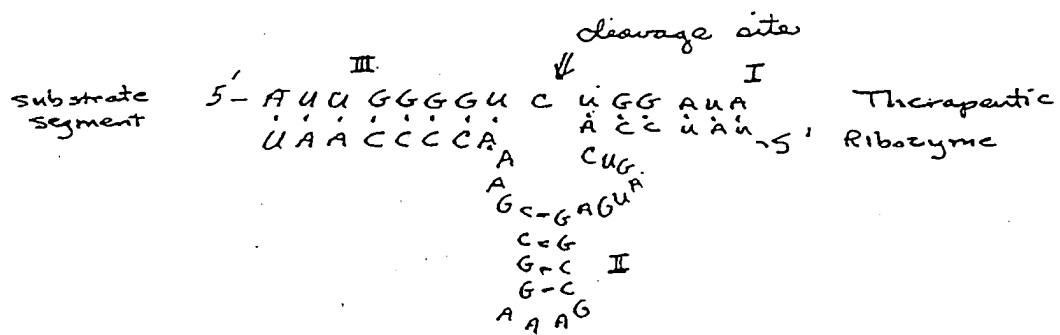 cleavage site
III
I
substrate segment 5'- A U U G G G G U C U G G A U A Therapeutic
U A A C C C C A A C C U A U -5' Ribozyme
A C U G
A A
G C - G A G U
C = G
G - C II
G - C
A A A G